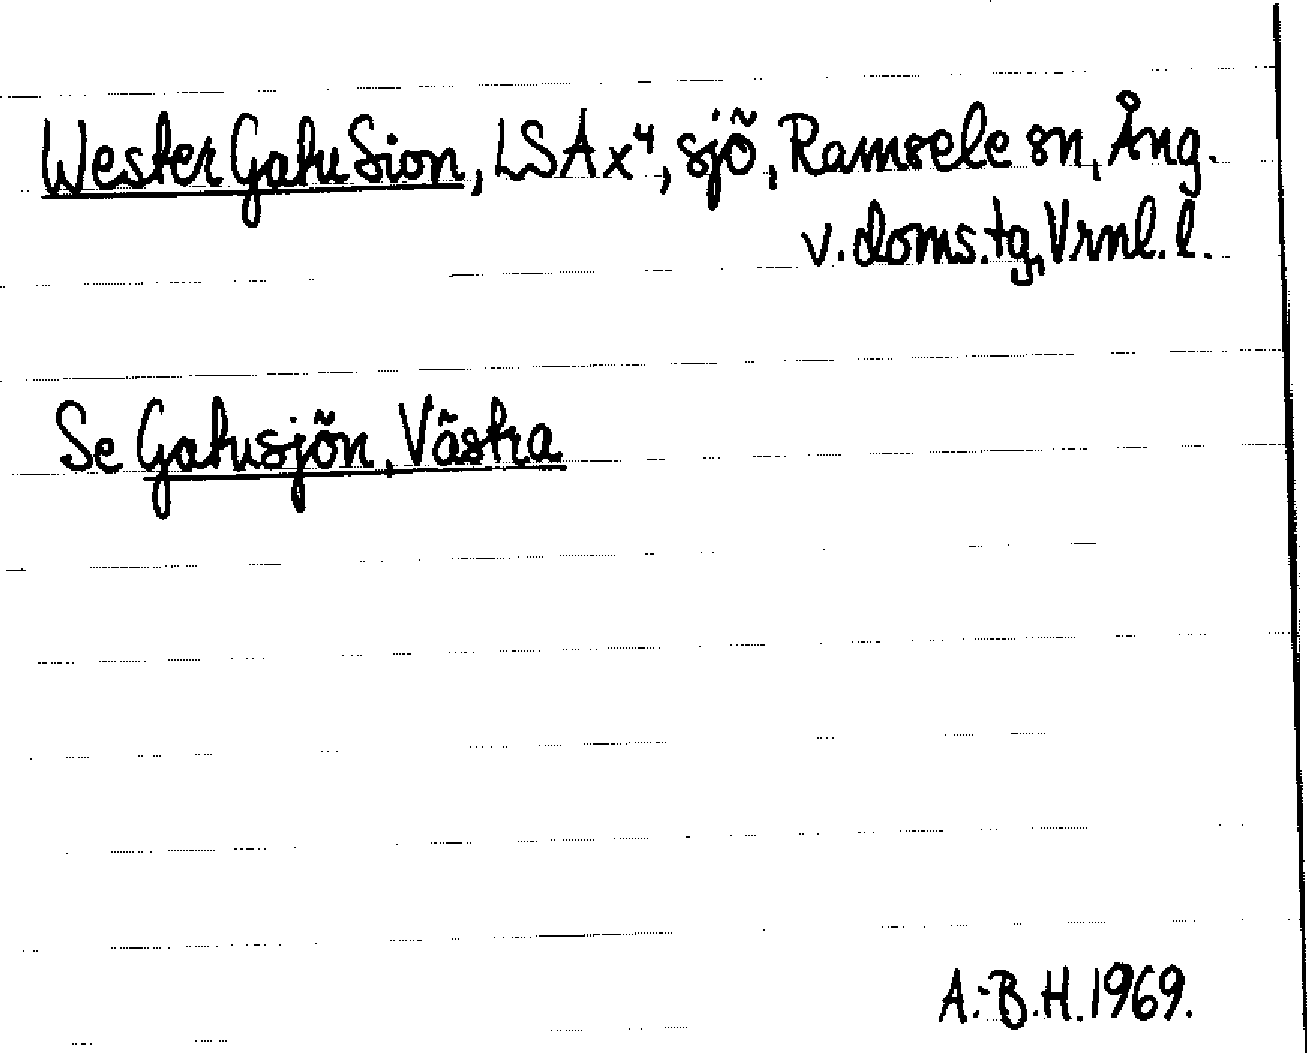 Wester Gatu Sion, LSA x⁴, sjö, Ramsele sn, Ång.
v. doms. tg, Vrnl. l.
Se Gatusjön, Västra
A.-B.H. 1969.